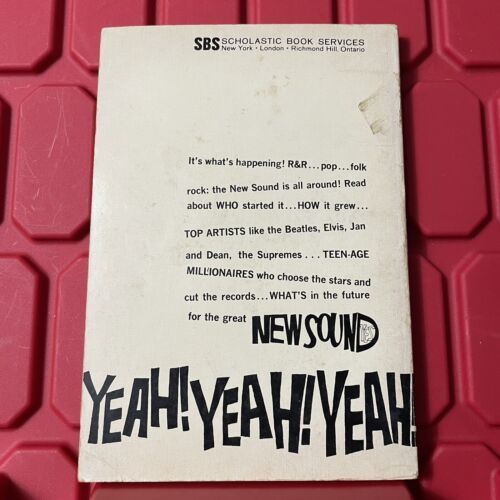 SBS SCHOLASTIC BOOK SERVICES
New York • London • Richmond Hill, Ontario
It's what's happening! R&R...pop...folk
rock: the New Sound is all around! Read
about WHO started it...HOW it grew...
TOP ARTISTS like the Beatles, Elvis, Jan
and Dean, the Supremes... TEEN-AGE
MILLIONAIRES who choose the stars and
cut the records...WHAT'S in the future
for the great NEW SOUND
YEAH! YEAH! YEAH!